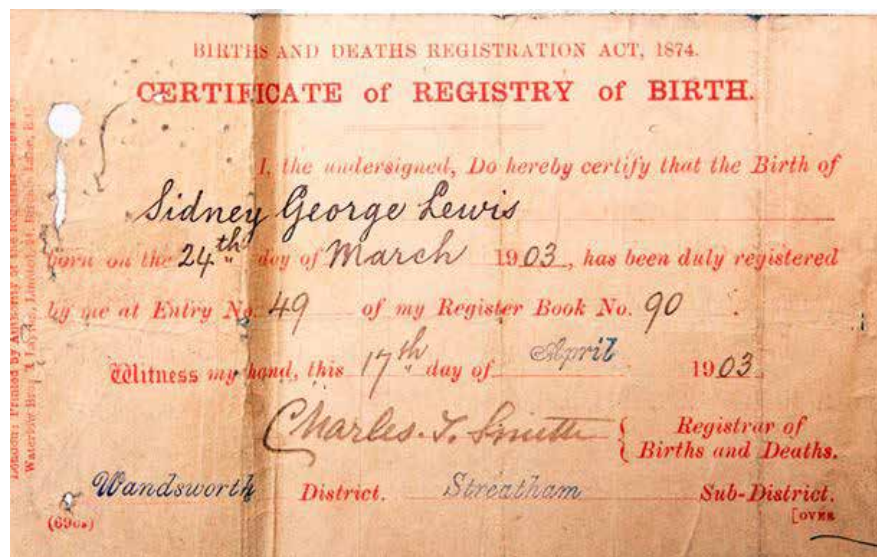 BIRTHS AND DEATHS REGISTRATION ACT, 1874.
CERTIFICATE of REGISTRY of BIRTH.
I, the undersigned, Do hereby certify that the Birth of
Sidney George Lewis
born on the 24th day of March 1903, has been duly registered
by me at Entry No. 49 of my Register Book No. 90.
Witness my hand, this 17th day of April 1903
Charles. T. Smith { Registrar of
Births and Deaths.
Wandsworth District. Streatham Sub-District.
[OVER
London: Printed by
Waterlow